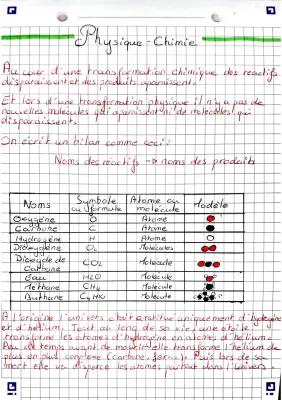 Physique - Chimie
Au cour d'une transformation chimique des réactifs
disparaissent et des produits apparaissent.
Et lors d'une transformation physique il n'y a pas de
nouvelles molécules qui apparaissent ni de molécules qui
disparaissent.
On écrit un bilan comme ceci:
Noms des réactifs → noms des produits
Noms Symbole ou formule Atome ou molécule Modèle
Oxygène O Atome
Carbone C Atome
Hydrogène H Atome
Dioxygène O2 Molécules
Dioxyde de Carbone CO2 Molécule
Eau H2O Molécule
Méthane CH4 Molécule
Buthane C4H10 Molécule
A l'origine l'univers était constitué uniquement d'hydrogène
et d'hélium. Tout au long de sa vie, une étoile
transforme les atomes d'hydrogène en atomes d'hélium.
Peu de temps avant de mourir elle transforme l'hélium de
plus en plus complexe (carbone, fer...). Puis lors de sa
mort elle va disperser les atomes partout dans l'univers.